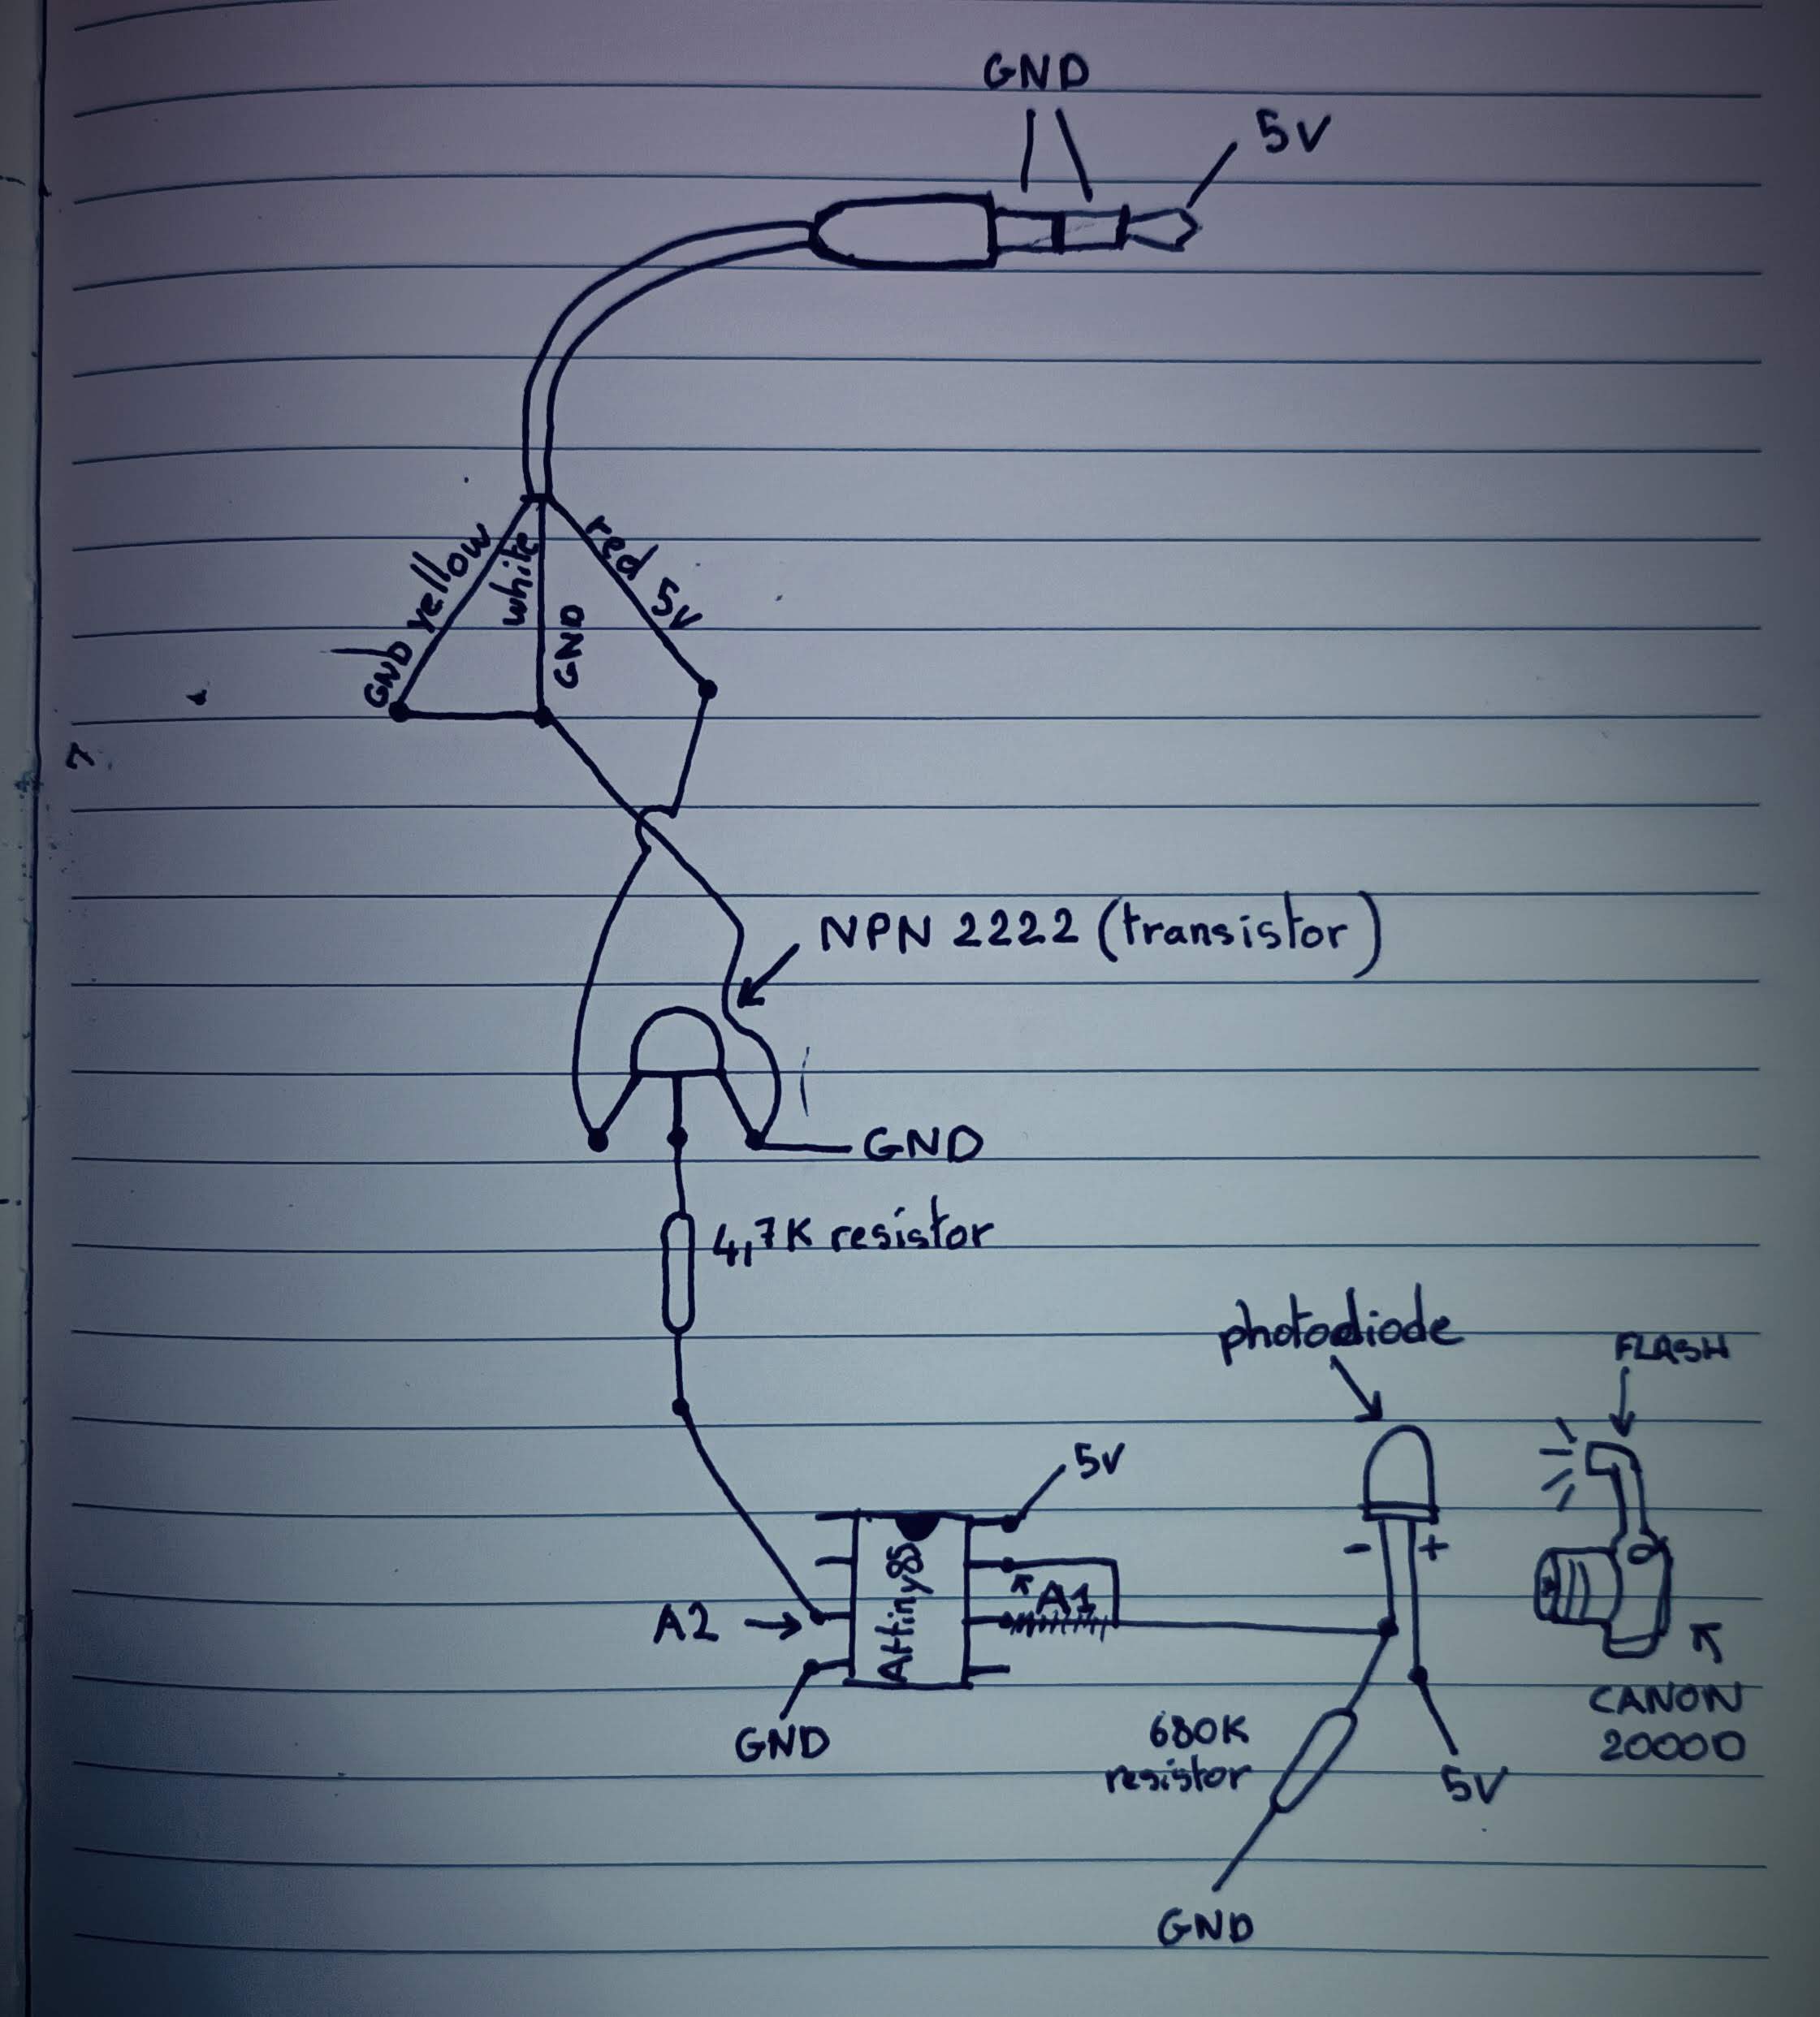 GND
5V
GND yellow
white
GND
red 5V
NPN 2222 (transistor)
GND
4,7K resistor
photodiode
FLASH
5V
- +
Attiny85
A1
A2
GND
680K
resistor
5V
CANON
2000D
GND